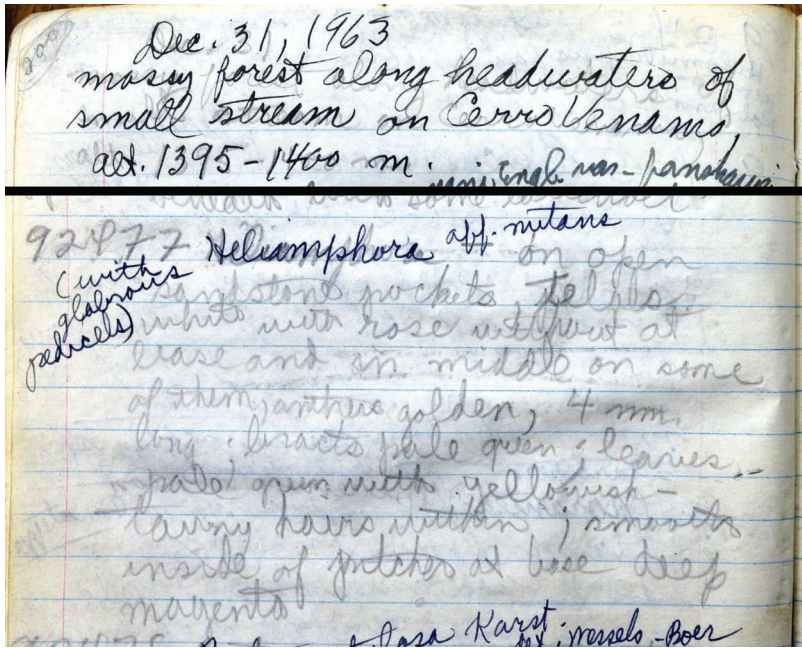 Dec. 31, 1963
mossy forest along headwaters of
small stream on Cerro Venamo,
alt. 1395-1400 m.
92477 Heliamphora aff. nutans on open
(with glabrous pedicels)
sandstone pockets, tepals
white with rose without at
base and in middle on some
of them; anthers golden, 4 mm.
long; bracts pale green; leaves
pale green with yellowish-
tawny hairs within; smooth
inside of pitcher at base deep
magenta
Karst.
Wessels-Boer